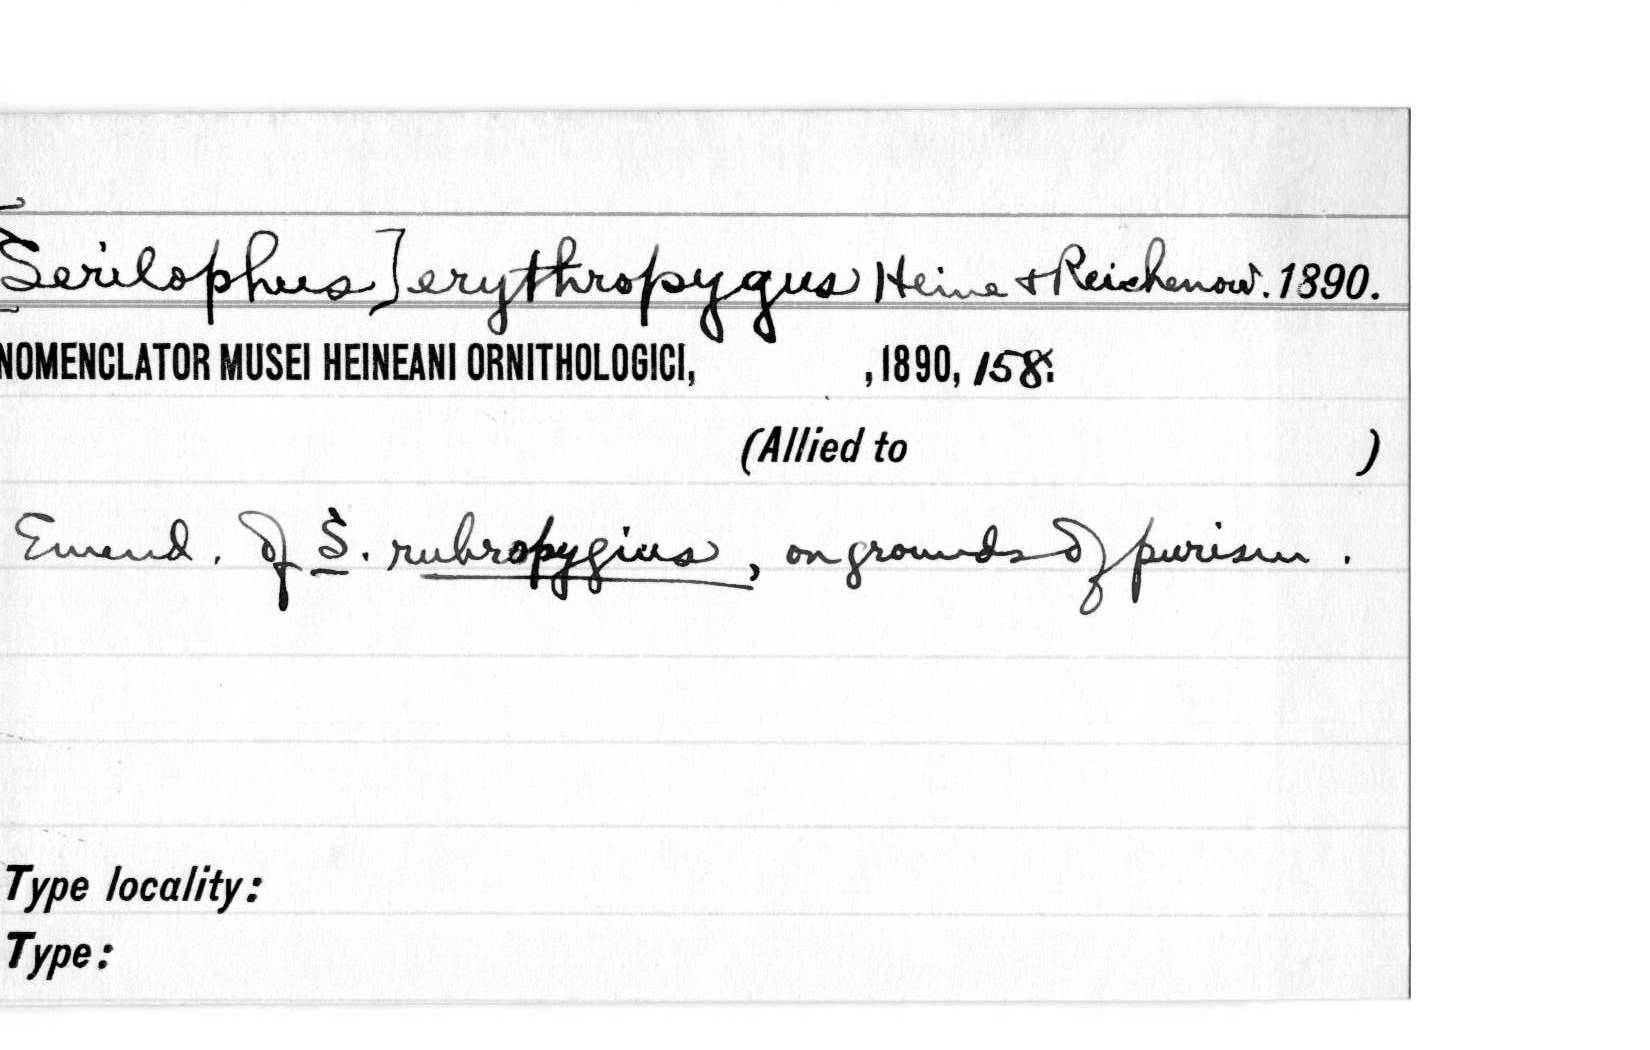 [Serilophus] erythropygus Heine & Reichenow. 1890.
NOMENCLATOR MUSEI HEINEANI ORNITHOLOGICI, , 1890, 158.
(Allied to )
Emend. of S. rubropygius, on grounds of purism.
Type locality:
Type: